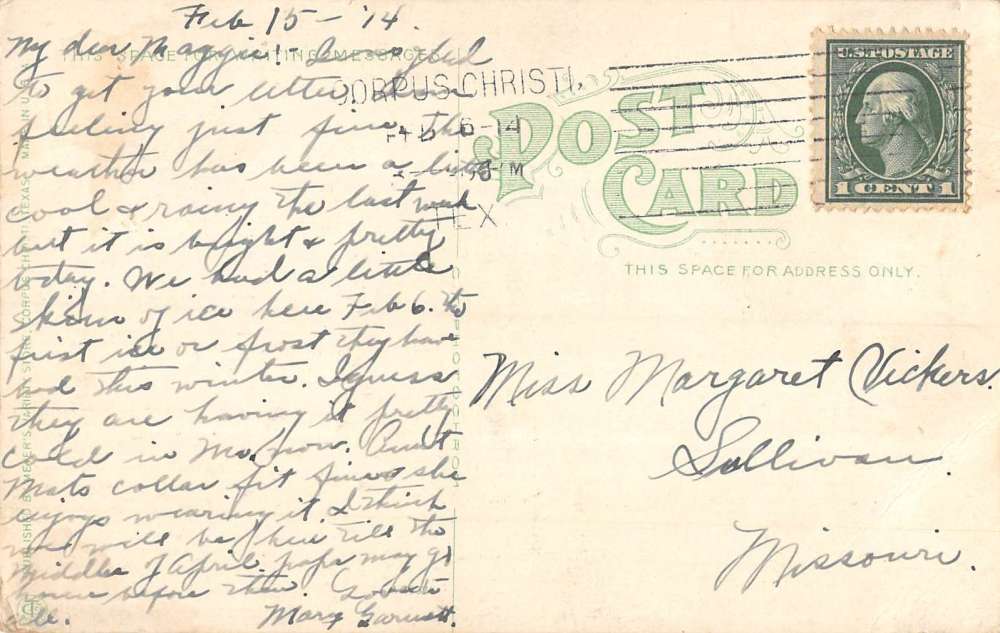 Feb 15 - '14.
My dear Maggie:- I was glad
to get your letter. Am
feeling just fine. The
weather has been a little
cool & rainy the last week
but it is bright & pretty
today. We had a little
skim of ice here Feb 6. the
first ice or frost they have
had this winter. I guess
they are having it pretty
cold in Mo. now. Aunt
Mats collar fit fine & she
enjoys wearing it. I think
we will be here till the
middle of April, papa may go
home before then. Love to
all. Mary Garnett.
THIS SPACE FOR WRITING MESSAGES
CORPUS CHRISTI,
FEB 16-14
M
TEX
POST CARD
U.S. POSTAGE
1 CENT 1
THIS SPACE FOR ADDRESS ONLY.
Miss Margaret Vickers.
Sullivan.
Missouri.
PUBLISHED BY MEYER'S VARIETY STORE, CORPUS CHRISTI, TEXAS. MADE IN U.S.A.